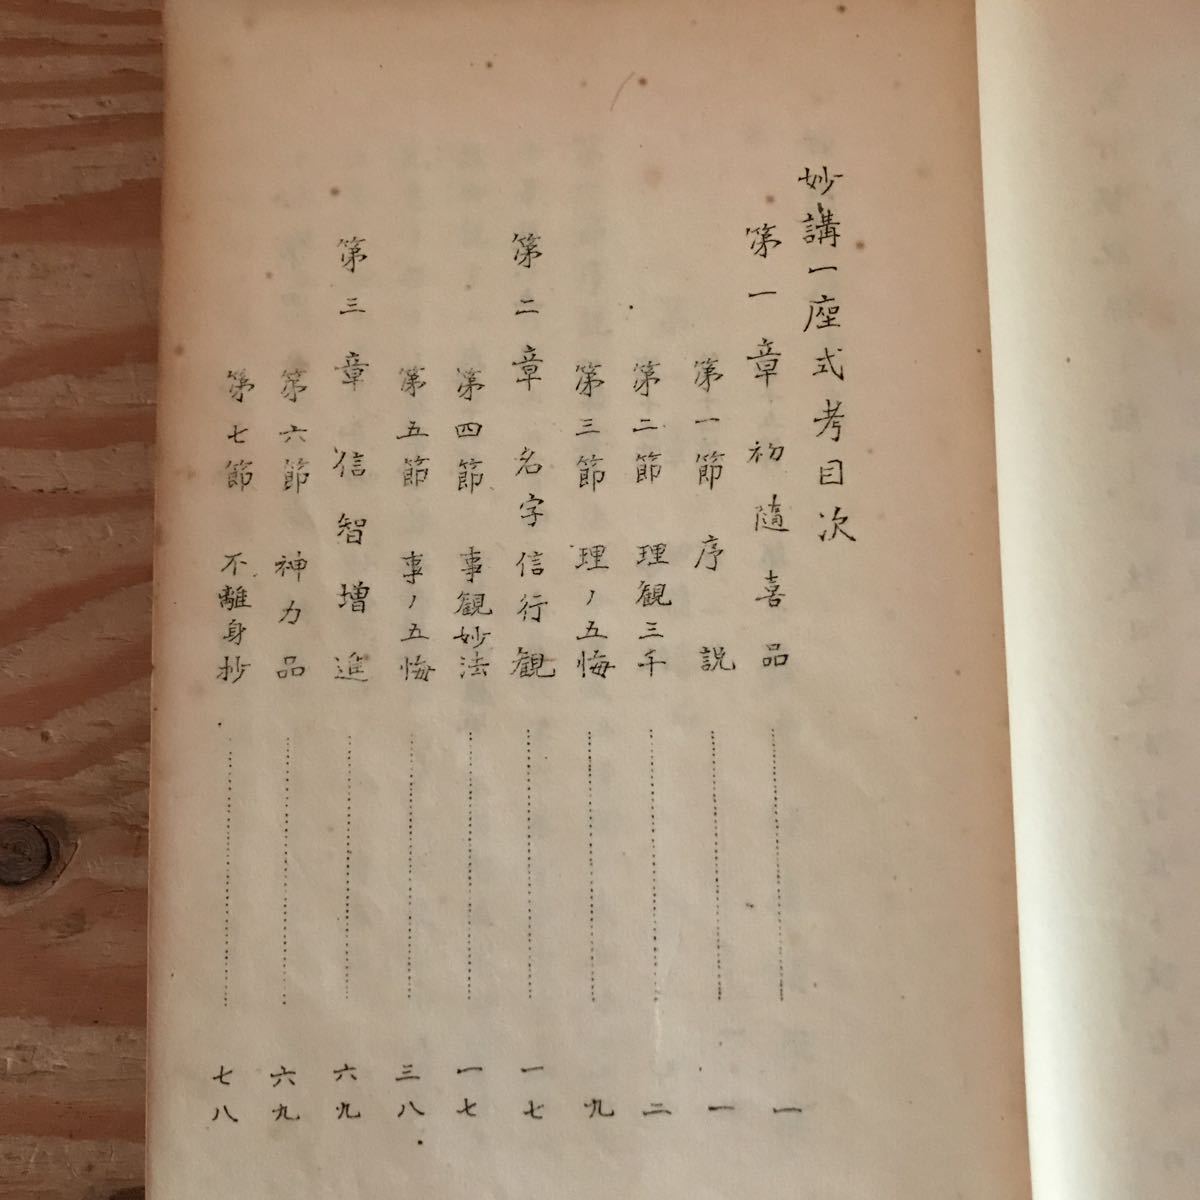 妙講一座式考目次
第一章 初随喜品……一
第一節 序説……一
第二節 理観三千……二
第三節 理ノ五悔……九
第二章 名字信行観……一七
第四節 事観妙法……一七
第五節 事ノ五悔……三八
第三章 信智増進……六九
第六節 神力品……六九
第七節 不離身抄……七八